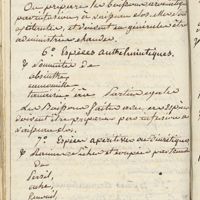 On prépare les boissons
par infusions à vaisseau clos
et doivent en général être
administrées chaudes.
6° Espèces anthelmintiques.
& Sommités de
absinthe,
camomille
tanaisie, &a Partie égale
Les Boissons faites avec ces espèces
doivent être préparées par infusion à
vaisseau clos.
7° Espèces apéritives ou diurétiques
& Racines sèches et coupées
de
Persil,
ache,
fenouil,